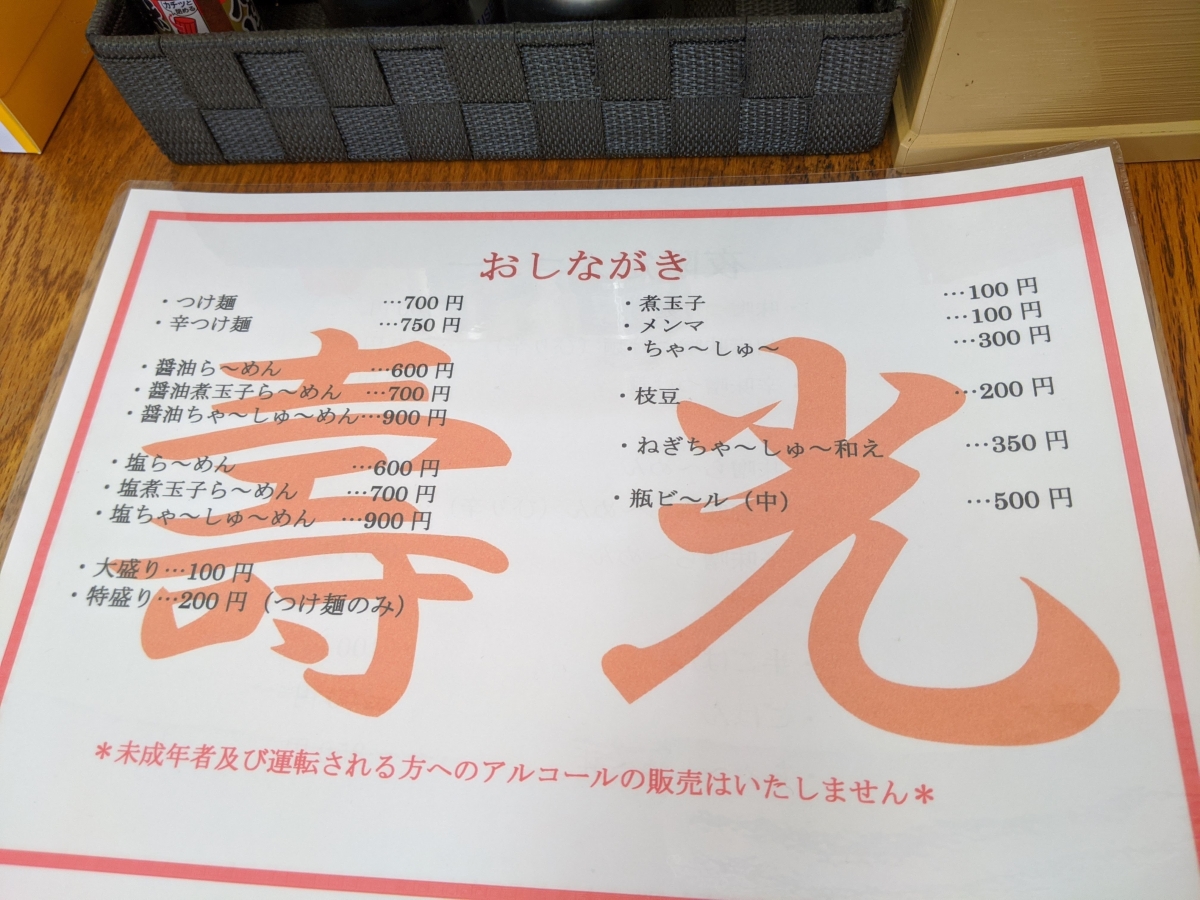 おしながき
・つけ麺 …700 円
・辛つけ麺 …750 円
・醤油ら～めん …600 円
・醤油煮玉子ら～めん …700 円
・醤油ちゃ～しゅ～めん…900 円
・塩ら～めん …600 円
・塩煮玉子ら～めん …700 円
・塩ちゃ～しゅ～めん …900 円
・大盛り…100 円
・特盛り…200 円（つけ麺のみ）
・煮玉子 …100 円
・メンマ …100 円
・ちゃ～しゅ～ …300 円
・枝豆 …200 円
・ねぎちゃ～しゅ～和え …350 円
・瓶ビ～ル（中） …500 円
壽光
＊未成年者及び運転される方へのアルコールの販売はいたしません＊